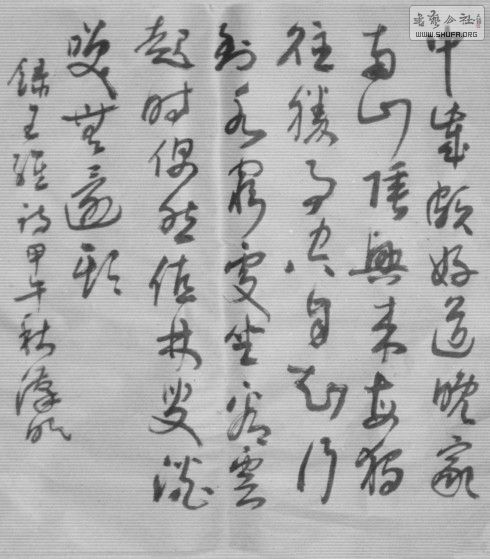 書藝公社
WWW.SHUFR.ORG
中歲頗好道晚家
南山陲興來每獨
往勝事空自知行
到水窮處坐看雲
起時偶然值林叟談
笑無還期
錄王維詩甲午秋